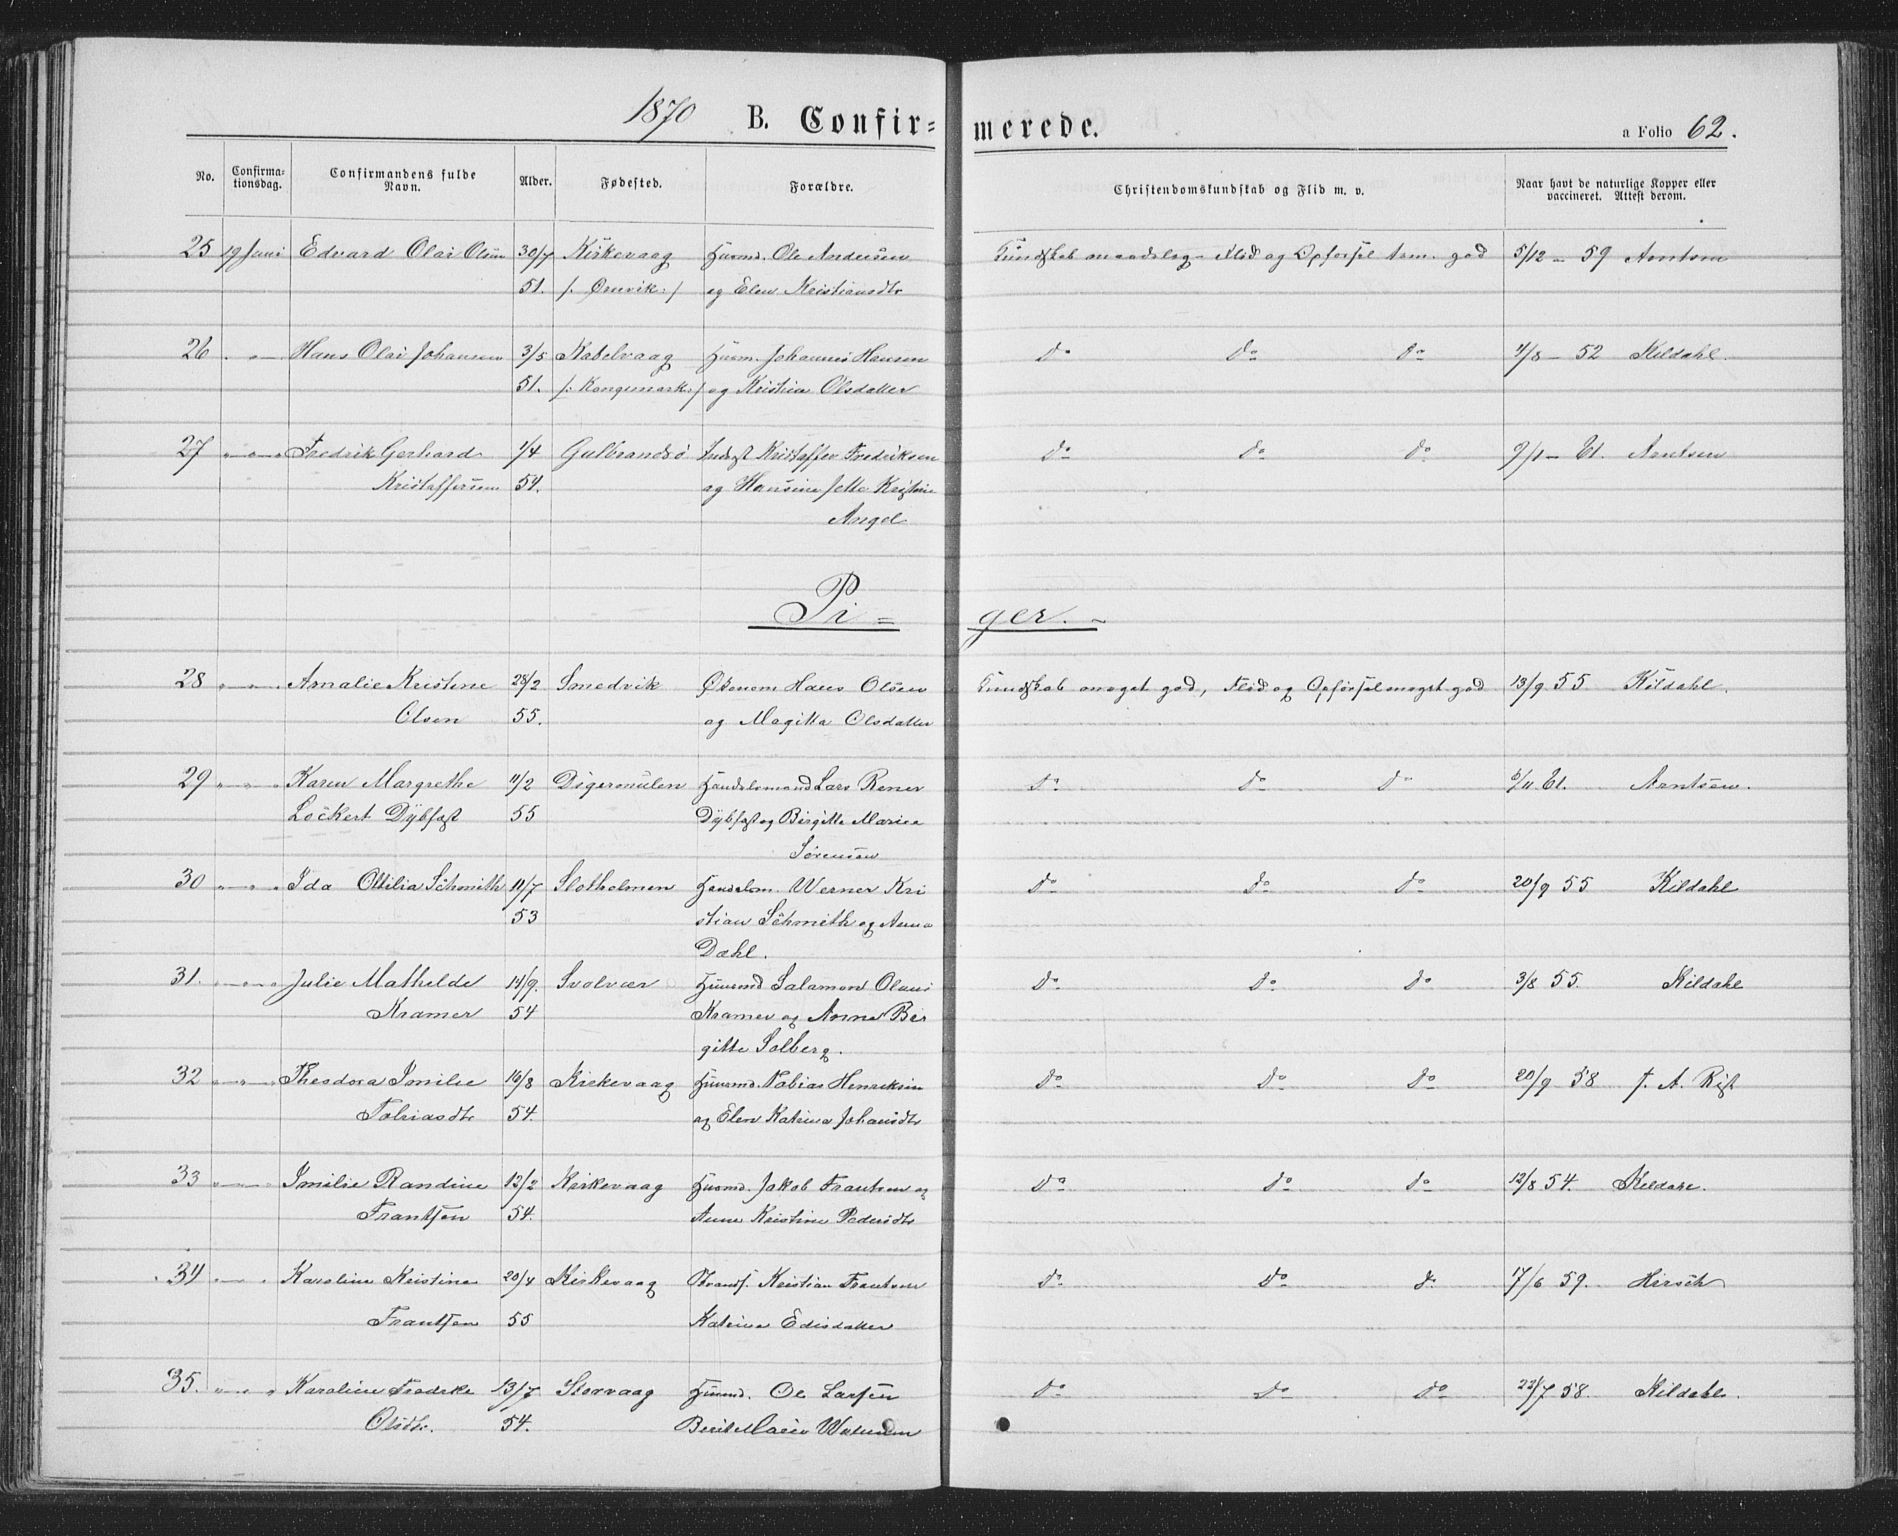 1870 B. Confir= merede. a Folio 62.
No. Confirma-tionsdag. Confirmandens fulde Navn. Alder. Fødested. Forældre. Christendomskundskab og Flid m. v. Naar havt de naturlige Kopper eller vaccineret. Attest derom.
25 19 Juni Edvard Olai Olsen 30/7 Kirkevaag Husmd. Ole Andersen Kundskab maadelig Flid og Opførsel Tem. god 5/12 - 59 Arntsen
51. /: Ørsvik :/ og Elen Kristiansdtr
26 " Hans Olai Johansen 3/5 Kabelvaag Husm. Johannes Hansen do do do 4/8 - 52 Kildahl.
51. /: Kongsmark :/ og Kristina Olsdatter
27 " " " Fredrik Gerhard 1/4 Gulbrandsø Indst Kristoffer Fredriksen do do do 9/1 - 61. Arntsen
Kristoffersen 54. og Hansine Jette Kristine
Angel
Pi = ger. -
28 " " Amalie Kristine 28/2 Smedvik Økonom Hans Olsen Kundskab meget god, Flid og Opførsel meget god 13/9 55 Kildahl.
Olsen 55. og Magitta Olsdatter
29 " " " Karen Margrethe 11/2 Digermulen Handelsmand Lars Rener do do do 6/11 61. Arntsen.
Lockert Dybfest 55 Dybfest og Birgitte Marie
Sørensen
30 " " " Ida Ottilia Schmith 11/7 Slotholmen Handelsm. Werner Kri do do do 20/9 55 Kildahl
53 stian Schmith og Anna
Dahl.
31. " " " Julie Mathilde 14/9. Svolvær Huusmd Salamon Olaus do do do 3/8 55. Kildahl
Kramer 54 Kramer og Anne Bir
gitte Solberg.
32 " " " Theodora Imilie 16/8 Kirkevaag Huusmd. Tobias Henriksen do do do 20/9 58 J. A. Rist
Tobiasdtr 54. og Elen Katrina Johansdtr
33 " " Imilie Randine 13/2 Kirkevaag Husmd. Jakob Frantsen og do do do 12/8 54. Kildahl.
Frantsen 54. Anne Kristine Pedersdtr
34 " " Karoline Kristine 20/4 Kirkevaag Strands. Kristian Frantsen do do do 17/6 59. Hirsch
Frantsen 55 Katrine Edisdatter
35. " " " Karoline Fredrike 13/7 Storvaag Huusmd. Ole Larsen do do do 22/7 58. Kildahl.
Olsdtr. 54. Berit Marie